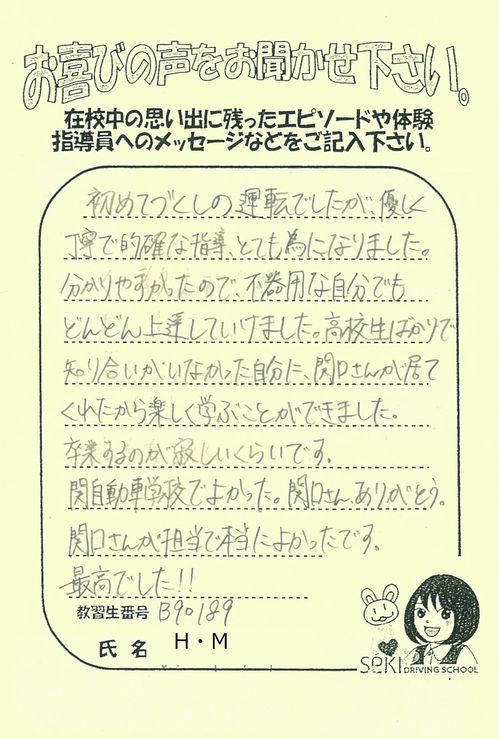 お喜びの声をお聞かせ下さい。
在校中の思い出に残ったエピソードや体験
指導員へのメッセージなどをご記入下さい。
初めてづくしの運転でしたが、優しく
丁寧で的確な指導、とても為になりました。
分かりやすかったので、不器用な自分でも
どんどん上達していけました。高校生ばかりで
知り合いがいなかった自分に、関口さんが居て
くれたから楽しく学ぶことができました。
卒業するのが寂しいくらいです。
関自動車学校でよかった。関口さん、ありがとう。
関口さんが担当で本当によかったです。
最高でした!!
教習生番号 B90189
氏名 H・M
SEKI DRIVING SCHOOL